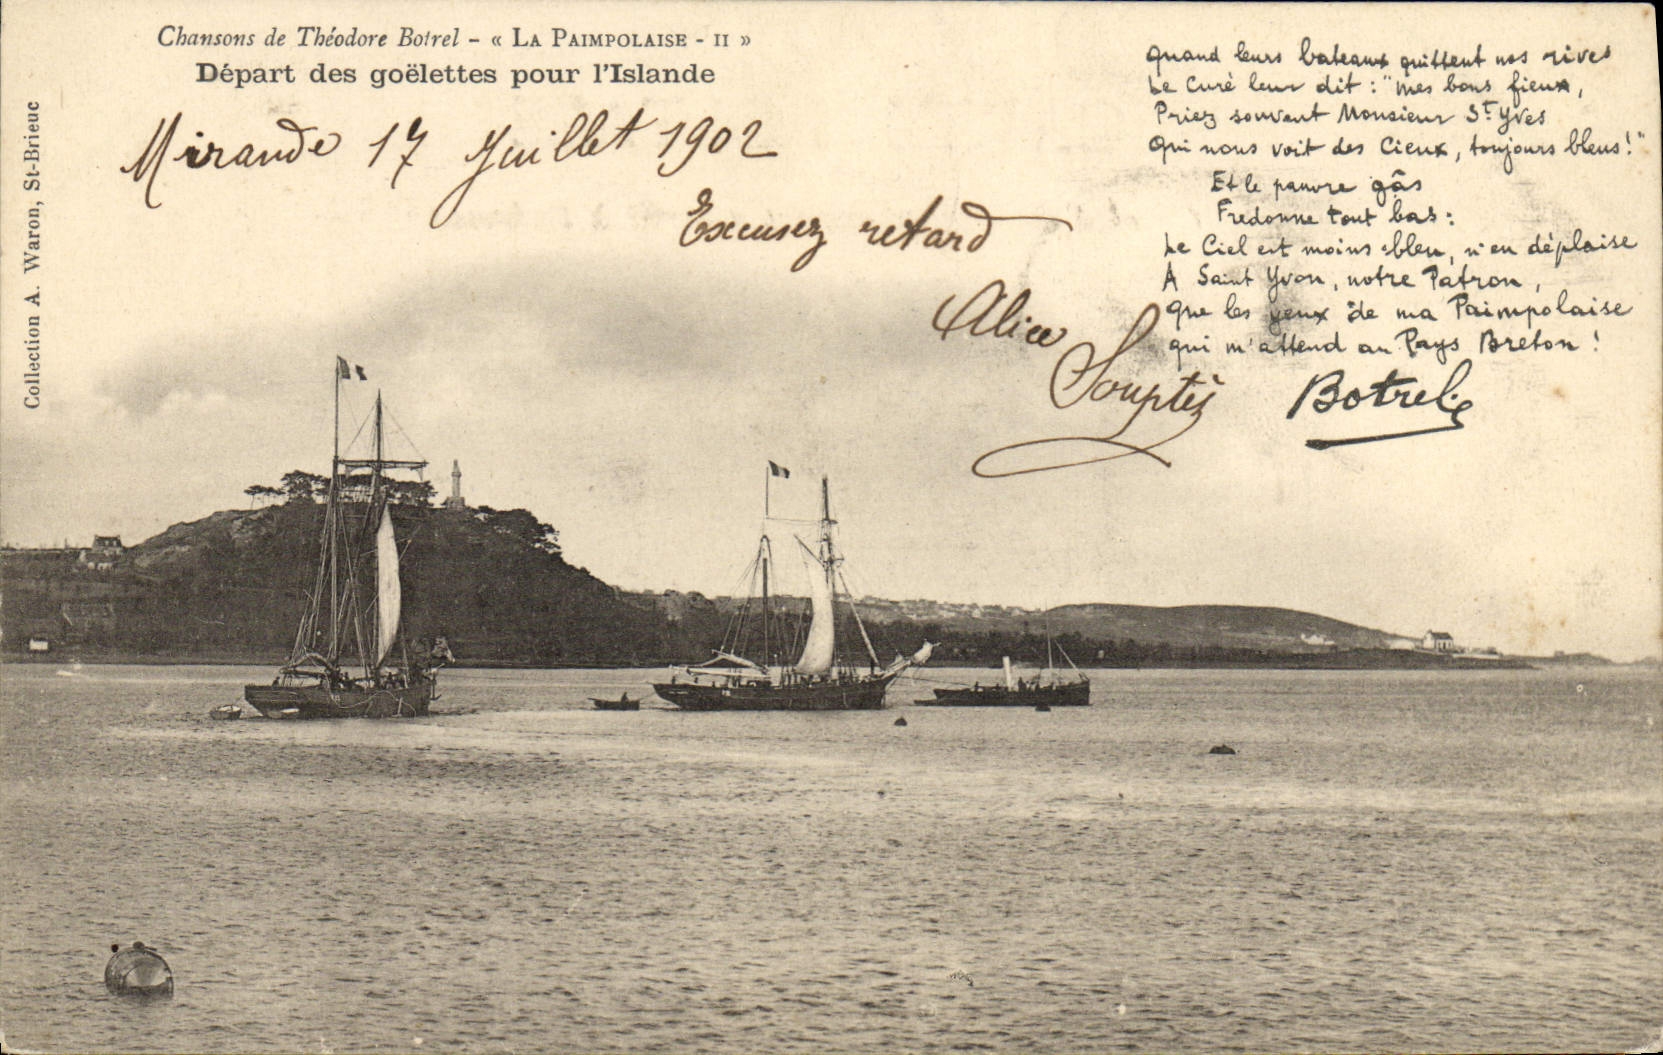 Chansons de Théodore Botrel - « LA PAIMPOLAISE - II »
Départ des goëlettes pour l'Islande
Collection A. Waron, St-Brieuc
Mirande 17 Juillet 1902
Excusez retard
Alice
Souptès
Quand leurs bateaux quittent nos rives
Le Curé leur dit : "mes bons fieux,
Priez souvent Monsieur St Yves
Qui nous voit des Cieux, toujours bleus!"
Et le pauvre gâs
Fredonne tout bas :
Le Ciel est moins bleu, n'en déplaise
A Saint Yvon, notre Patron,
Que les yeux de ma Paimpolaise
qui m'attend au Pays Breton !
Botrel